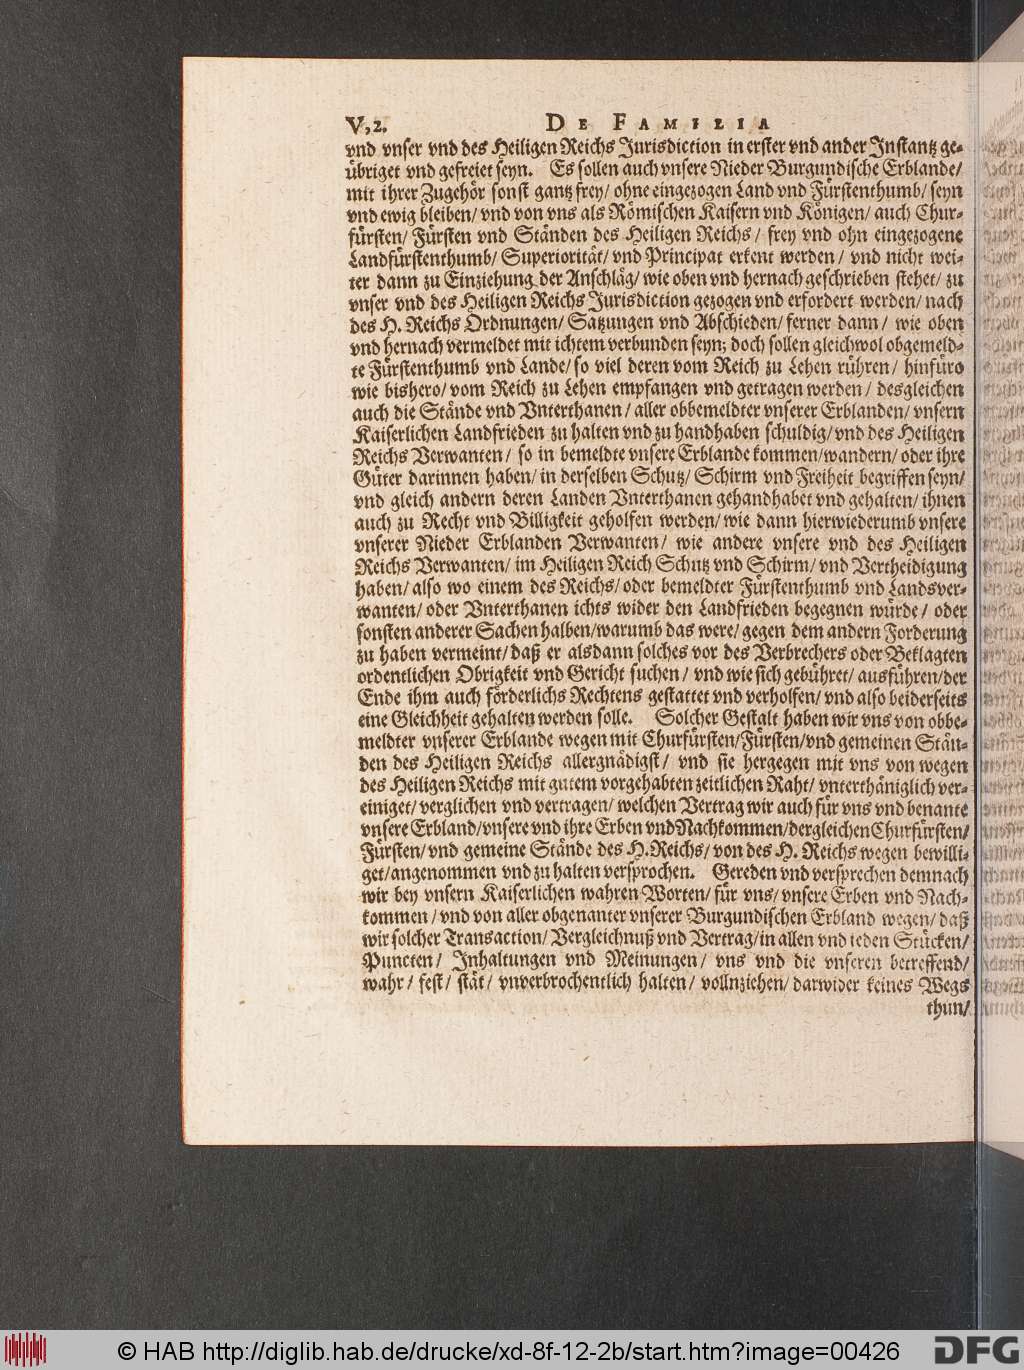 V, 2. DE FAMILIA
vnd vnser vnd des Heiligen Reichs Jurisdiction in erster vnd ander Instantz ge-
übriget vnd gefreiet seyn. Es sollen auch vnsere Nieder Burgundische Erblande/
mit ihrer Zugehör sonst gantz frey/ ohne eingezogen Land vnd Fürstenthumb/ seyn
vnd ewig bleiben/ vnd von vns als Römischen Kaisern vnd Königen/ auch Chur-
fürsten/ Fürsten vnd Ständen des Heiligen Reichs/ frey vnd ohn eingezogene
Landfürstenthumb/ Superiorität/ vnd Principat erkent werden/ vnd nicht wei-
ter dann zu Einziehung der Anschläg/ wie oben vnd hernach geschrieben stehet/ zu
vnser vnd des Heiligen Reichs Jurisdiction gezogen vnd erfordert werden/ nach
des H. Reichs Ordnungen/ Satzungen vnd Abschieden/ ferner dann/ wie oben
vnd hernach vermeldet mit ichtem verbunden seyn; doch sollen gleichwol obgemeld-
te Fürstenthumb vnd Lande/ so viel deren vom Reich zu Lehen rühren/ hinfüro
wie bishero/ vom Reich zu Lehen empfangen vnd getragen werden/ desgleichen
auch die Stände vnd Vnterthanen/ aller obbemeldter vnserer Erblanden/ vnsern
Kaiserlichen Landfrieden zu halten vnd zu handhaben schuldig/ vnd des Heiligen
Reichs Verwanten/ so in bemeldte vnsere Erblande kommen/ wandern/ oder ihre
Güter darinnen haben/ in derselben Schutz/ Schirm vnd Freiheit begriffen seyn/
vnd gleich andern deren Landen Vnterthanen gehandhabet vnd gehalten/ ihnen
auch zu Recht vnd Billigkeit geholfen werden/ wie dann hierwiederumb vnsere
vnserer Nieder Erblanden Verwanten/ wie andere vnsere vnd des Heiligen
Reichs Verwanten/ im Heiligen Reich Schutz vnd Schirm/ vnd Vertheidigung
haben/ also wo einem des Reichs/ oder bemeldter Fürstenthumb vnd Landsver-
wanten/ oder Vnterthanen ichts wider den Landfrieden begegnen würde/ oder
sonsten anderer Sachen halben/ warumb das were/ gegen dem andern Forderung
zu haben vermeint/ daß er alsdann solches vor des Verbrechers oder Beklagten
ordentlichen Obrigkeit vnd Gericht suchen/ vnd wie sich gebühret/ ausführen/ der
Ende ihm auch förderlichs Rechtens gestattet vnd verholfen/ vnd also beiderseits
eine Gleichheit gehalten werden solle. Solcher Gestalt haben wir vns von obbe-
meldter vnserer Erblande wegen mit Churfürsten/ Fürsten/ vnd gemeinen Stän-
den des Heiligen Reichs allergnädigst/ vnd sie hergegen mit vns von wegen
des Heiligen Reichs mit gutem vorgehabten zeitlichen Raht/ vnterthäniglich ver-
einiget/ verglichen vnd vertragen/ welchen Vertrag wir auch für vns vnd benante
vnsere Erbland/ vnsere vnd ihre Erben vnd Nachkommen/ dergleichen Churfürsten/
Fürsten/ vnd gemeine Stände des H. Reichs/ von des H. Reichs wegen bewilli-
get/ angenommen vnd zu halten versprochen. Gereden vnd versprechen demnach
wir bey vnsern Kaiserlichen wahren Worten/ für vns/ vnsere Erben vnd Nach-
kommen/ vnd von aller obgenanter vnserer Burgundischen Erbland wegen/ daß
wir solcher Transaction/ Vergleichnuß vnd Vertrag/ in allen vnd ieden Stücken/
Puncten/ Inhaltungen vnd Meinungen/ vns vnd die vnseren betreffend/
wahr/ fest/ stät/ vnverbrochentlich halten/ vollnziehen/ darwider keines Wegs
thun/
© HAB http://diglib.hab.de/drucke/xd-8f-12-2b/start.htm?image=00426
DFG